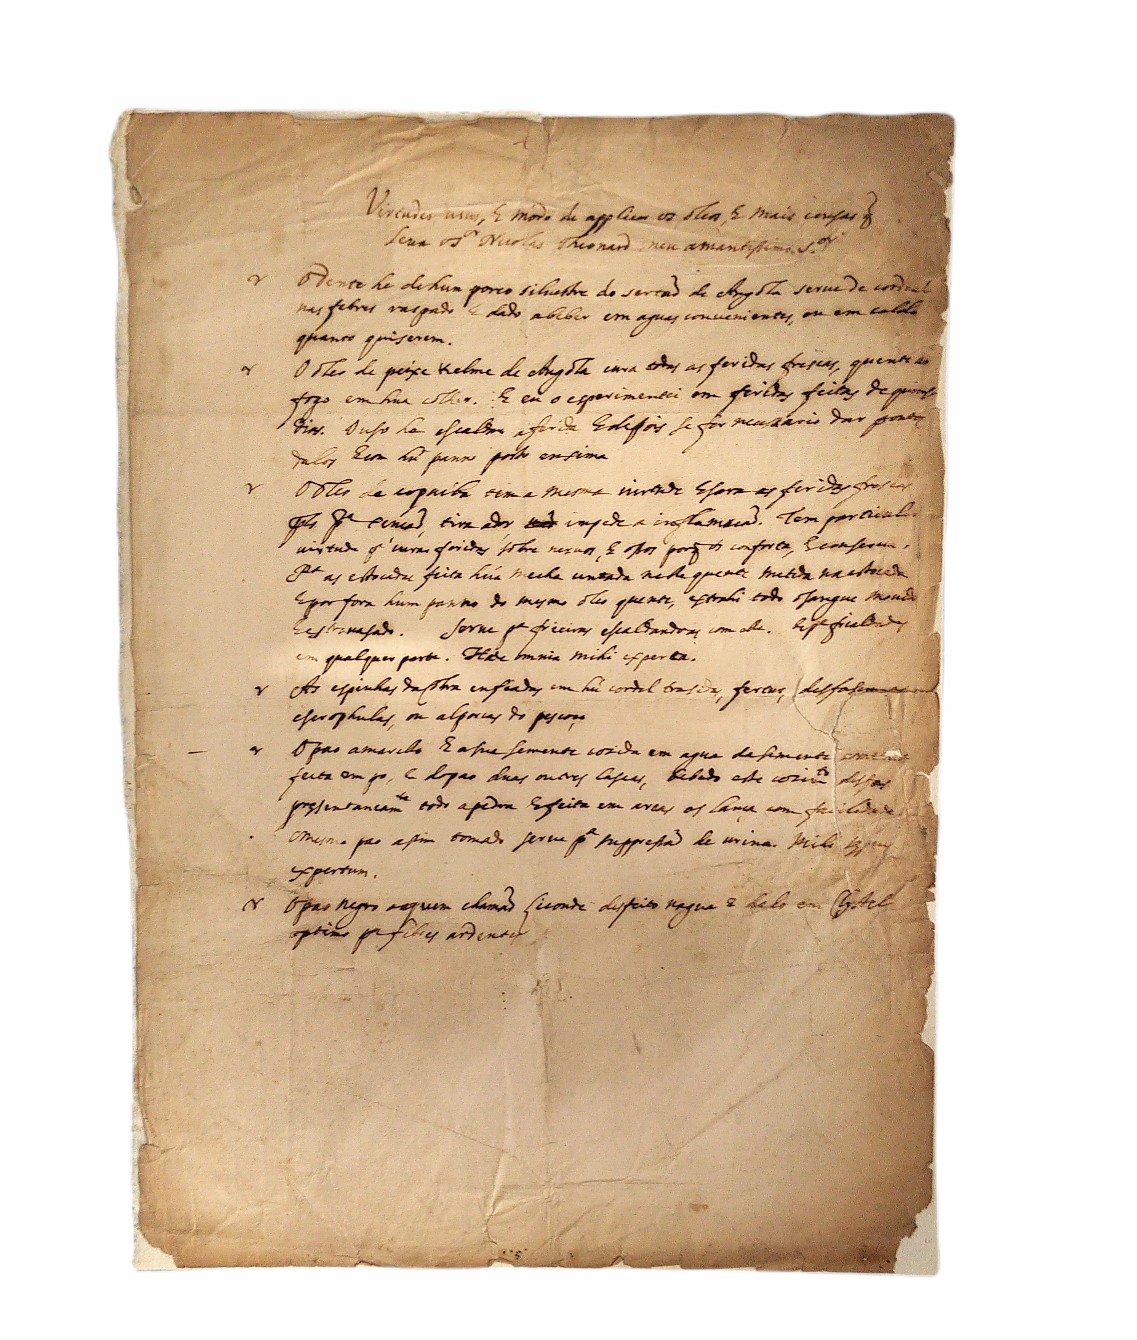 Virtudes usos, & modo de applicar os oleos, & mais cousas q̃
leva o S.or Nicolas meu amantissimo S.or
O dente he de hum porco silvestre do sertaõ de Angola serve de cordeal
nas febres raspado & dado a beber em aguas convenientes, ou em caldo
quanto quiserem.
O oleo de peixe de Angola cura todas as feridas frescas, quente ao
fogo em hũa colher. E eu o esperimentei em feridas feitas de
dias. O uso he escaldar a ferida & depois se for necessario dar pontos
dalos & com hũ panno posto ensima
O oleo de copaiba tem a mesma virtude & sara as feridas frescas
tira a dor impede a inflamacaõ. Tem particular
virtude p.a curar feridas sobre nervos, & osos porq̃ os conforta, & conserva.
P.a as estocadas feita hũa mecha untada neste quente metida na estocada
& por fora hum panno do mesmo oleo quente, extrahi todo o sangue moido
& estravasado. Serve p.a fricoins escaldandoas com elle.
em qualquer parte. Hæc omnia mihi experta.
As espinhas da cobra enfiadas em hũ cordel trasidas,
escrophulas, ou alporcas do pescoço
O pao amarello & a sua semente cozida em agua da semente
feita em po, & do pao duas ou tres lascas, bebado este cozim.to desfas
presentaneam.te toda a pedra & feita em areas os lança com facilidade
O mesmo pao assim tomado serve p.a suppressaõ de urina. Mihi
expertum.
O pao negro a quem chamaõ desfeito n agua & dalo em
optimo p.a febres ardentes